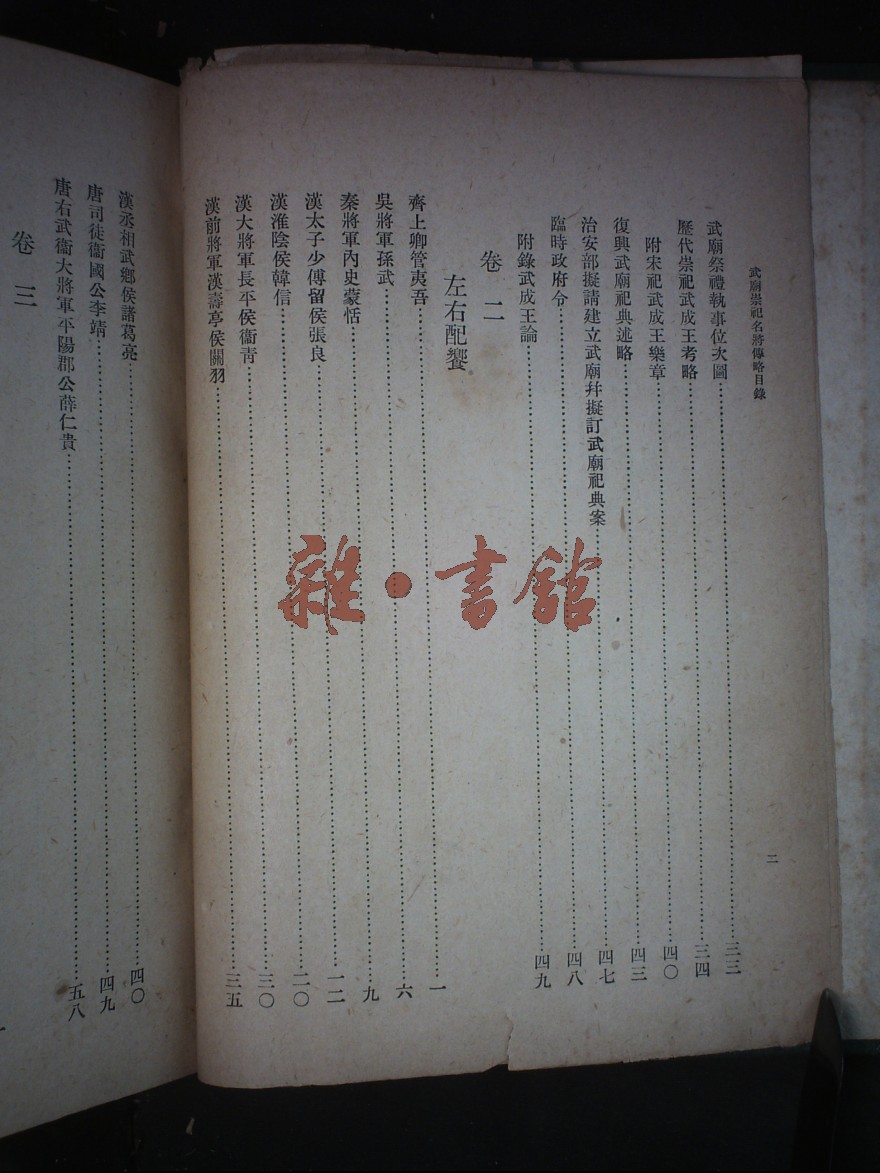 武廟崇祀名將傳略目錄
二
武廟祭禮執事位次圖……三三
歷代崇祀武成王考略……三四
附宋祀武成王樂章……四〇
復興武廟祀典述略……四三
治安部擬請建立武廟幷擬訂武廟祀典案……四七
臨時政府令……四八
附錄武成王論……四九
卷二
左右配饗
齊上卿管夷吾……一
吳將軍孫武……六
秦將軍內史蒙恬……九
漢太子少傅留侯張良……一二
漢淮陰侯韓信……二〇
漢大將軍長平侯衞青……三〇
漢前將軍漢壽亭侯關羽……三五
漢丞相武鄉侯諸葛亮……四〇
唐司徒衞國公李靖……四九
唐右武衞大將軍平陽郡公薛仁貴……五八
卷三
雜·書館